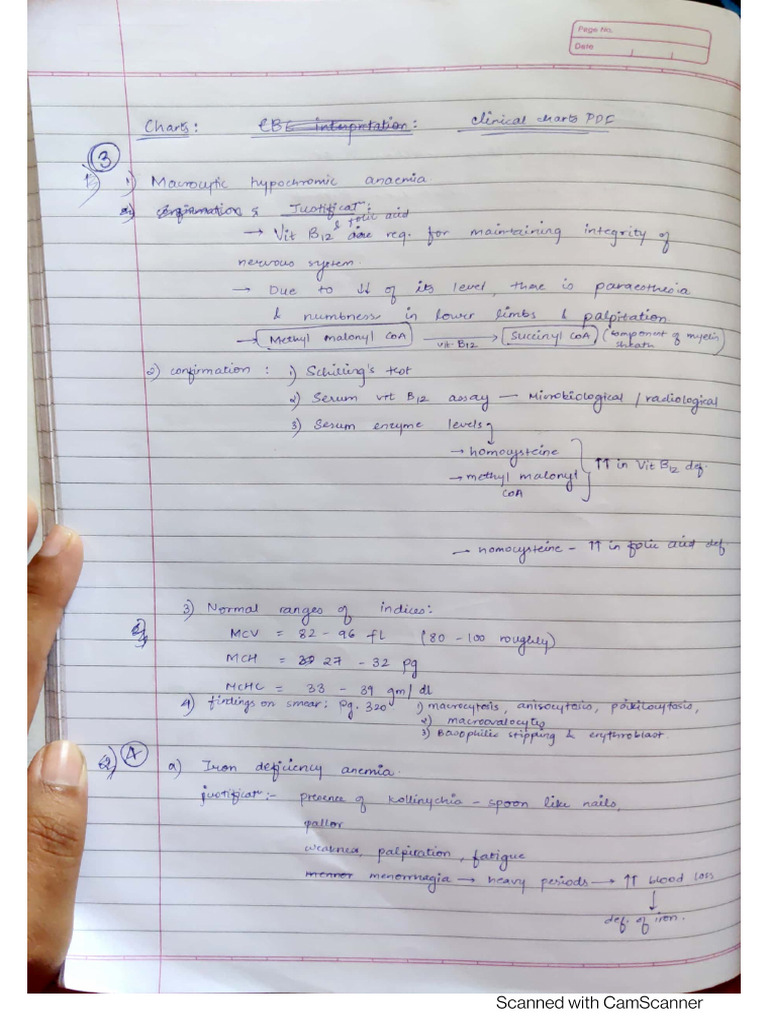 Page No.
Date
Charts: CBC interpretation: Clinical charts PDF
3
1) 1) Macrocytic hypochromic anaemia
Justificat:
→ Vit B12 & folic acid are req. for maintaining integrity of
nervous system.
→ Due to ↓↓ of its level, there is paraesthesia
& numbness in lower limbs & palpitation.
→ Methyl malonyl CoA → vit B12 Succinyl CoA (component of myelin sheath)
2) confirmation : 1) Schilling's test
2) Serum vit B12 assay — Microbiological / radiological
3) Serum enzyme levels
→ homocysteine
→ methyl malonyl CoA
↑↑ in Vit B12 def.
→ homocysteine - ↑↑ in folic acid def
3) Normal ranges of indices:
MCV = 82 - 96 fl (80 - 100 roughly)
MCH = 27 - 32 pg
MCHC = 33 - 39 gm/dl
4) findings on smear: Pg. 320 1) macrocytosis, anisocytosis, poikilocytosis,
2) macroovalocytes
3) Basophilic stippling & erythroblast.
2) 4 a) Iron deficiency anemia.
justificat:- presence of kollinychia - spoon like nails,
pallor
weaknes, palpitation, fatigue
menorrhagia → heavy periods → ↑↑ blood loss
↓
def. of iron.
Scanned with CamScanner